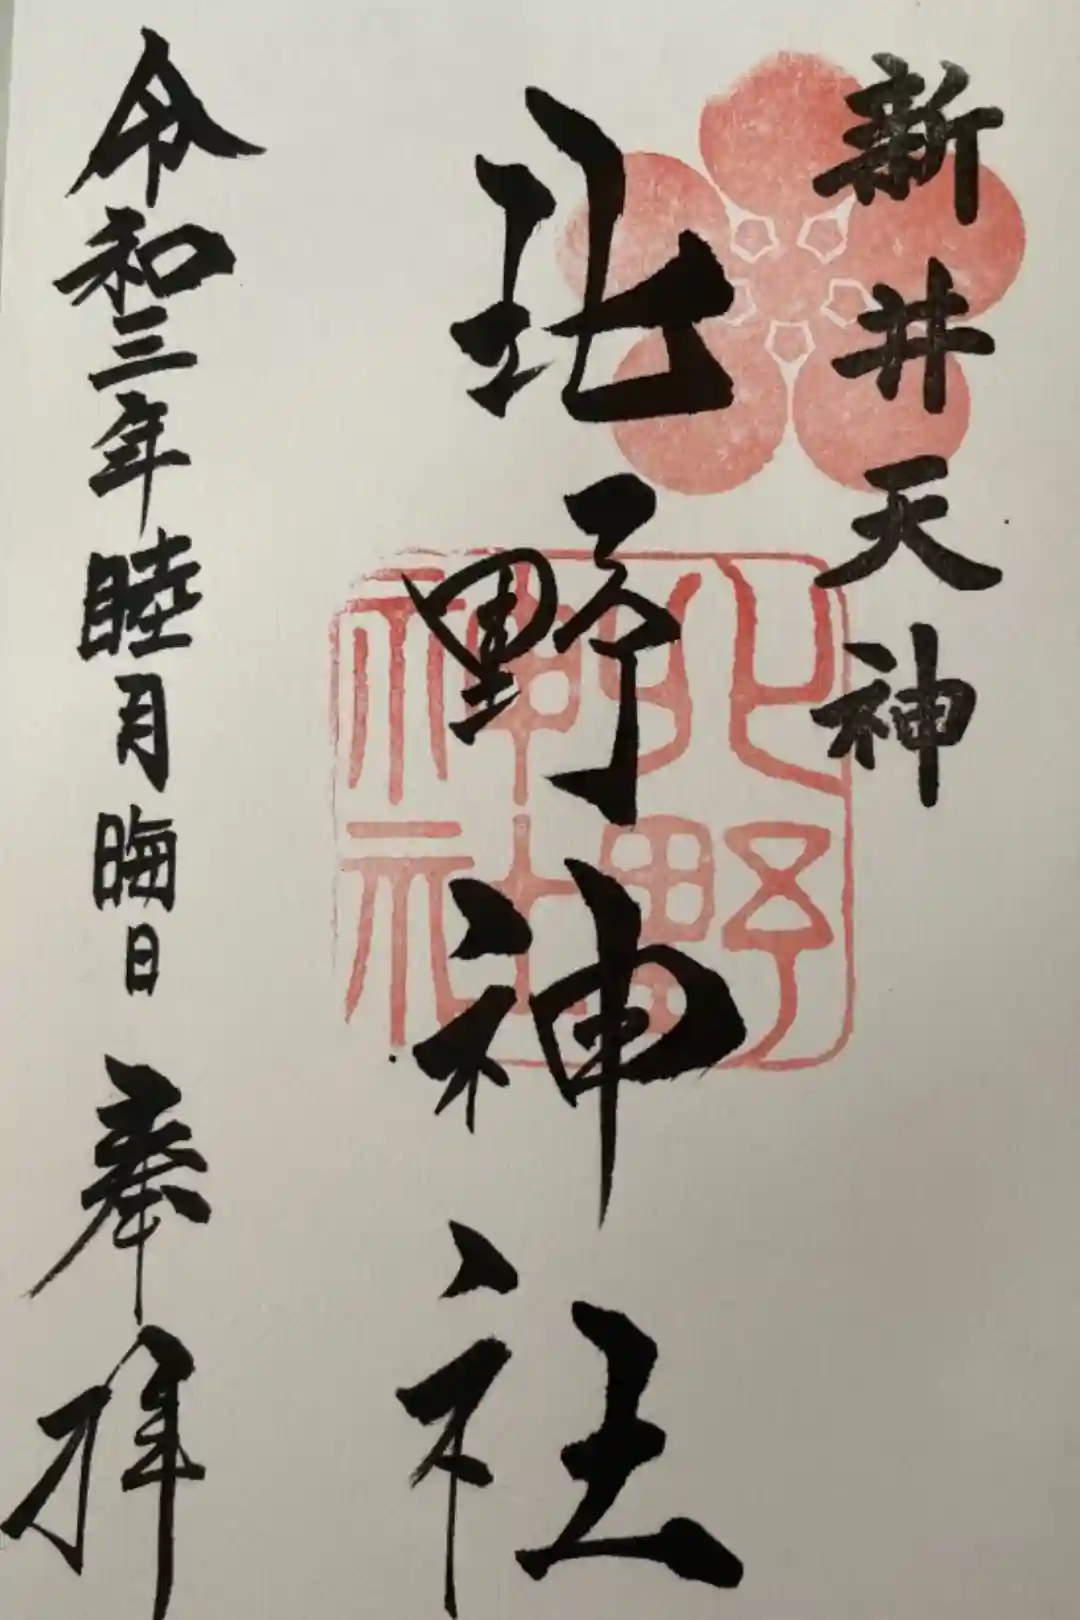 新井天神
北野神社
北野
神社
令和三年睦月晦日 奉拝